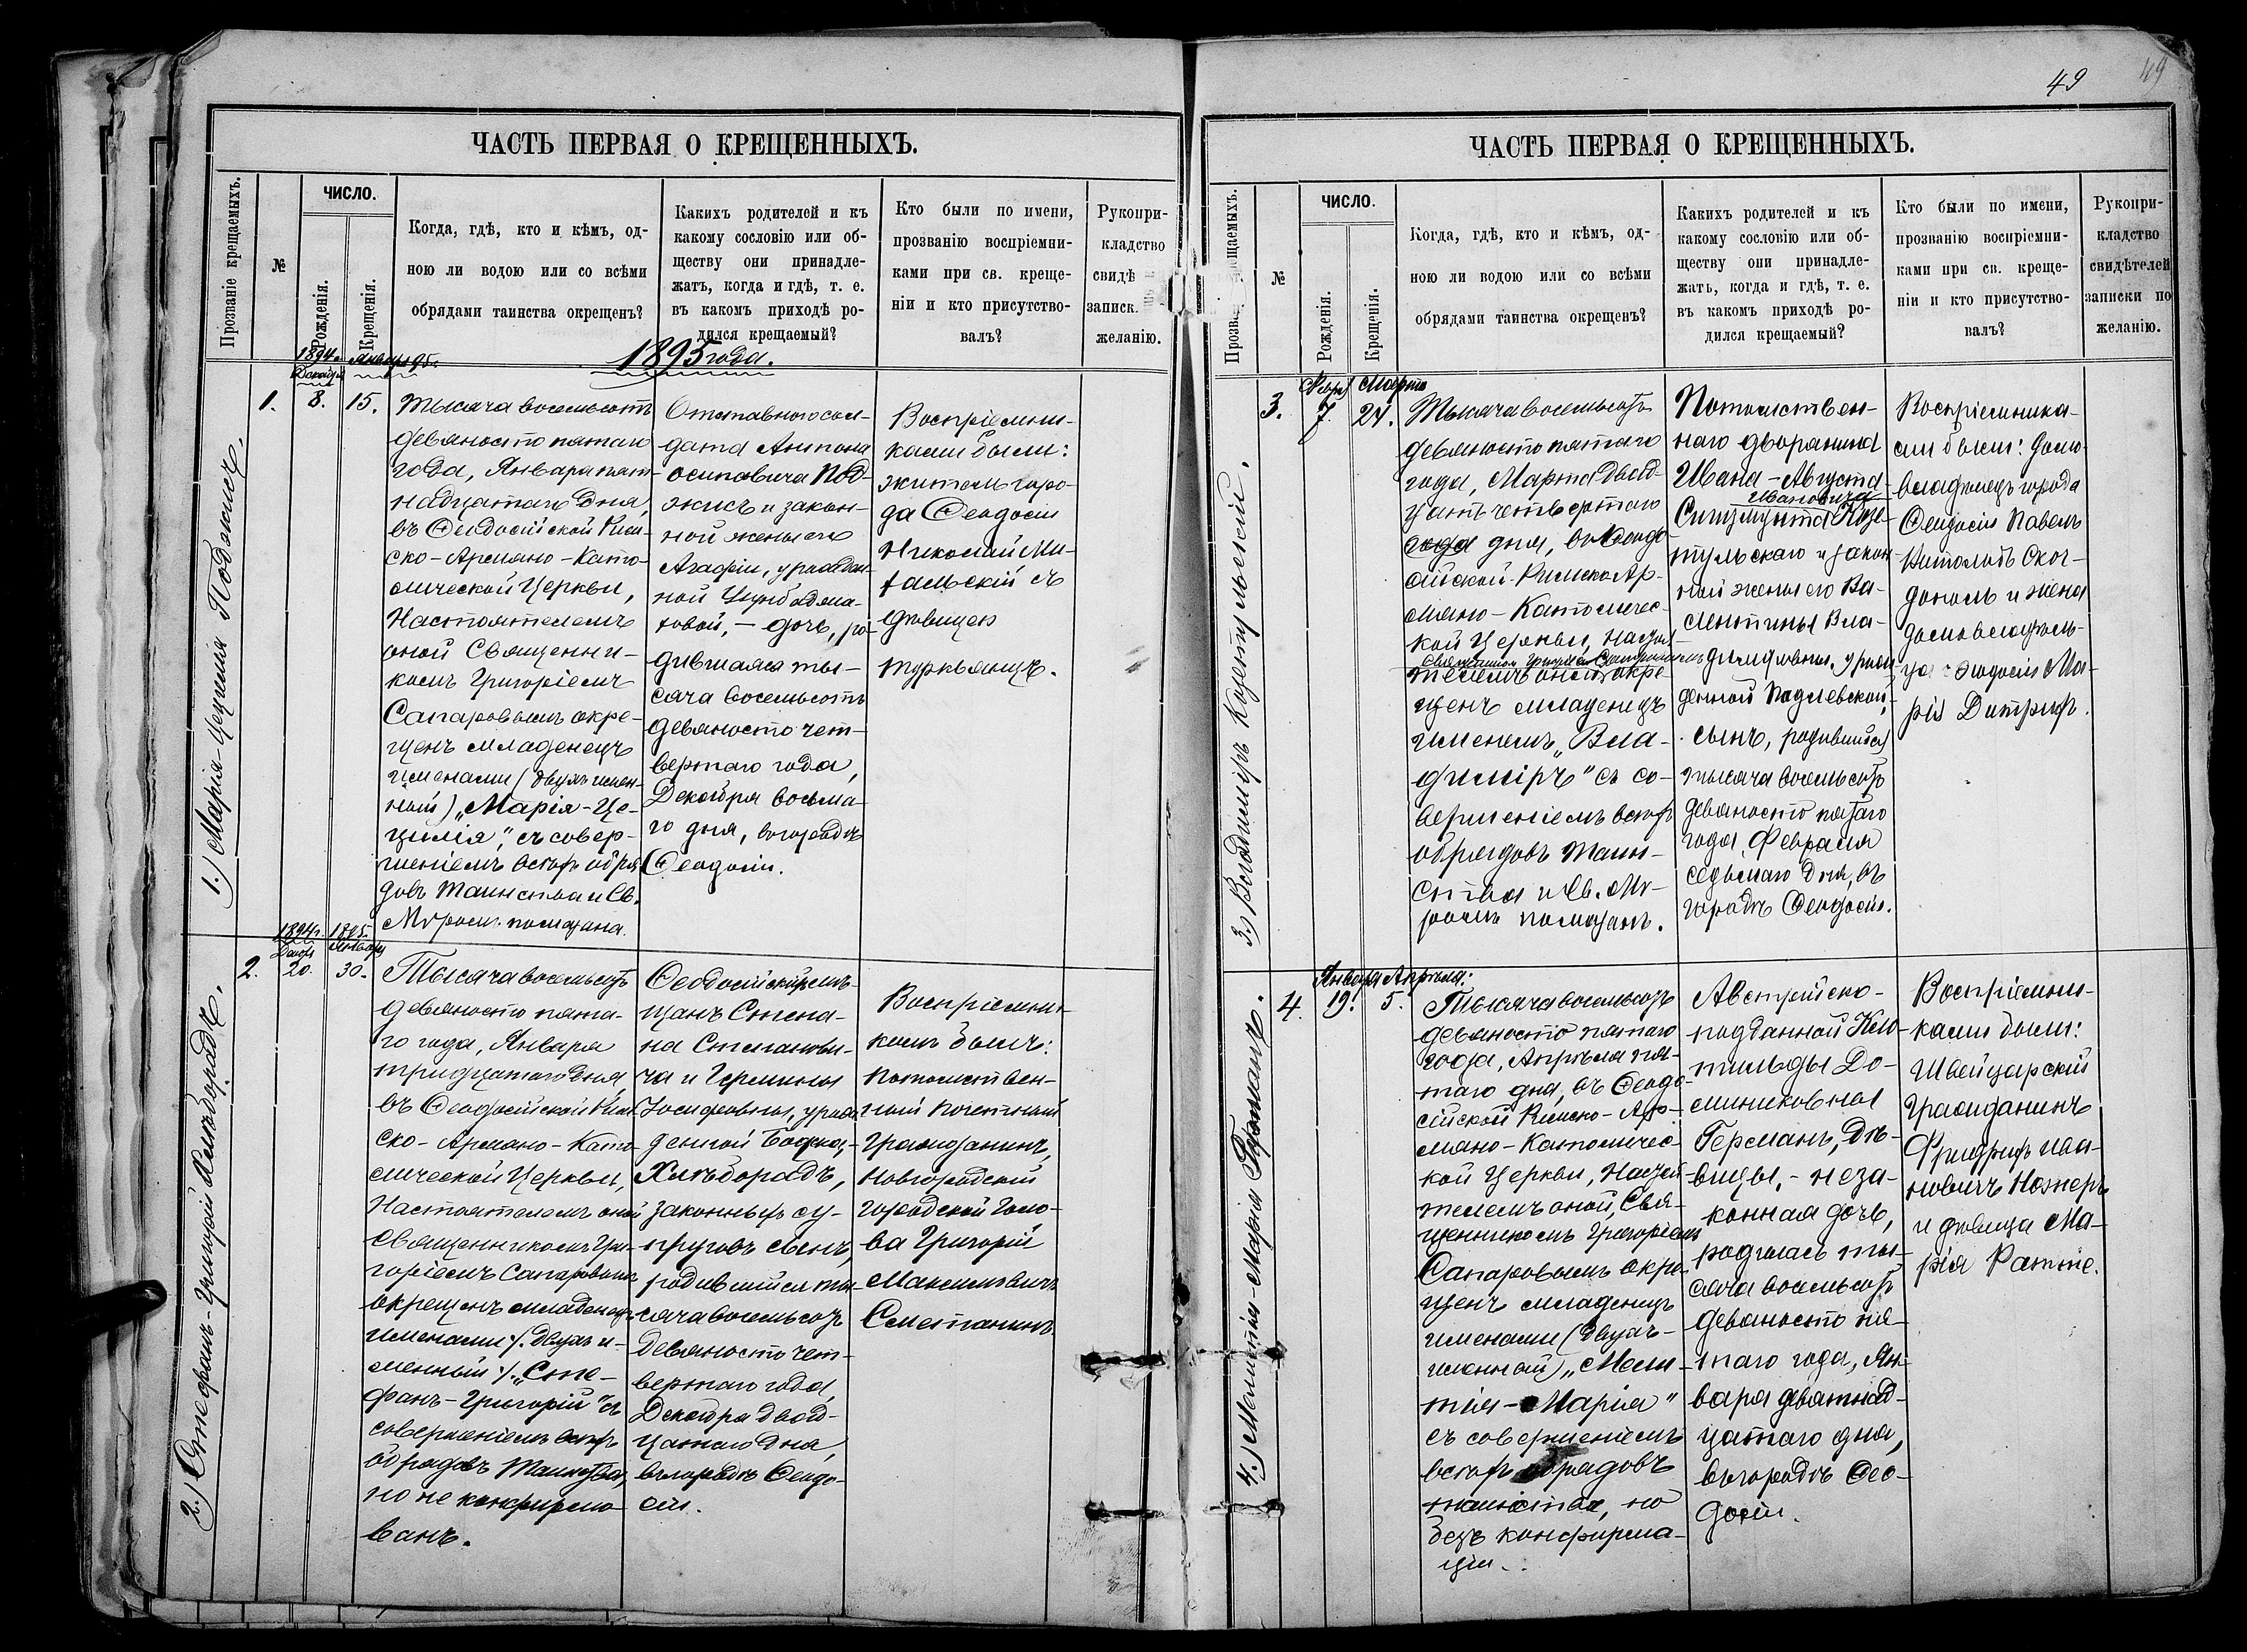 ЧАСТЬ ПЕРВАЯ О КРЕЩЕННЫХЪ.
Прозваніе крещаемыхъ.
№
ЧИСЛО.
Рожденія.
Крещенія.
Когда, гдѣ, кто и кѣмъ, од-
ною ли водою или со всѣми
обрядами таинства окрещенъ?
Каихъ родителей и къ
какому сословію или об-
ществу они принадле-
жатъ, когда и гдѣ, т. е.
въ какомъ приходѣ ро-
дился крещаемый?
Кто были по имени,
прозванію воспріемни-
ками при св. креще-
ніи и кто присутство-
валъ?
Рукопри-
кладство
свидѣ
записк.
желанію.
1895 года.
1.) Марія-Цецилія Поджисъ.
1.
1894г.
Декабря
8.
Января 95г.
15.
Тысяча восемьсотъ
девяносто пятаго
года, Января пят-
надцатаго дня,
въ Ѳеодосійской Рим-
ско-Армяно-Като-
лической Церкви,
Настоятелемъ
оной Священни-
комъ Григоріемъ
Сапаровымъ окре-
щенъ младенецъ
именами (двухъимен-
ный) „Марія-Це-
цилія", съ совер-
шеніемъ всѣхъ обря
довъ Таинства и Св.
Мѵромъ помазана.
Отставного сол-
дата Антона
Осиповича Под-
жисъ и закон-
ной жены его
Агафіи, урожден-
ной
товой, - дочь, ро-
дившаяся ты-
сяча восемьсотъ
девяносто чет-
вертаго года,
Декабря восьма-
го дня, въ городѣ
Ѳеодосіи.
Воспріемни-
ками были:
житель горо-
да Ѳеодосіи
Николай Ми-
тальскій съ
дѣвицею
Туркьянцъ.
2.) Стефанъ-Григорій Хлѣборадъ.
2.
1894г.
Декабр
20.
1895.
Января
30.
Тысяча восемьсотъ
девяносто пята-
го года, Января
тридцатаго дня,
въ Ѳеодосійской Рим-
ско-Армяно-Като-
лической Церкви,
Настоятелемъ оной
Священникомъ Гри-
горіемъ Сапаровымъ
окрещенъ младенецъ
именами /. двухъ и-
менный /. „Сте-
фанъ-Григорій" съ
совершеніемъ всѣхъ
обрядовъ Таинства,
но не конфирмо-
ванъ.
Ѳеодосійскихъ мѣ-
щанъ Степа-
на Степанови-
ча и Гермины
Іосифовны, урож-
денной
Хлѣборадъ,
законныхъ су-
пруговъ сынъ,
родившійся ты-
сяча восемьсотъ
девяносто чет-
вертаго года,
Декабря двад-
цатаго дня,
въ городѣ Ѳеодо-
сіи.
Воспріемни-
комъ былъ:
потомствен-
ный почетный
гражданинъ,
Новгородскій
городской Голо-
ва Григорій
Максимовичъ
Сметанинъ.
49
49
ЧАСТЬ ПЕРВАЯ О КРЕЩЕННЫХЪ.
Прозва щаемыхъ.
№
ЧИСЛО.
Рожденія.
Крещенія.
Когда, гдѣ, кто и кѣмъ, од-
ною ли водою или со всѣми
обрядами таинства окрещенъ?
Какихъ родителей и къ
какому сословію или об-
ществу они принадле-
жатъ, когда и гдѣ, т. е.
въ какомъ приходѣ ро-
дился крещаемый?
Кто были по имени,
прозванію воспріемни-
ками при св. креще-
ніи и кто присутство-
валъ?
Рукопри-
кладство
свидѣтелей
записки по
желанію.
3.) Владиміръ Козетульскій.
3.
Февр.
7.
Марта
24.
Тысяча восемьсотъ
девяносто пятаго
года, Марта двад-
цать четвертаго
года дня, въ Ѳеодо-
сійской Римско Ар-
мяно-Католичес-
кой Церкви, Настоя-
Священникомъ Григоріемъ Сапаровымъ
телемъ оной, окре-
щенъ младенецъ
именемъ „Вла-
диміръ" съ со-
вершеніемъ всѣхъ
обрядовъ Таин-
ства и Св. Мѵ-
ромъ помазанъ.
Потомствен-
наго дворянина
Ивана-Августа-
Ивановича
Сигизмунта Козе-
тульскаго и закон-
ной жены его Ва-
лентины Вла-
диміровны, урож-
денной Подлевской,
сынъ, родившійся
тысяча восемьсотъ
девяносто пятаго
года, Февраля
седьмаго дня, въ
городѣ Ѳеодосіи.
Воспріемника-
ми были: домо-
владѣлецъ города
Ѳеодосіи Павелъ
Витольдъ Ског-
домовладѣль-
ца Ѳеодосіи Ма-
рія Дитрихъ.
4.) Мелитія-Марія Германъ.
4.
Января
19.
Апрѣля:
5.
Тысяча восемьсотъ
девяносто пятаго
года, Апрѣля пя-
таго дня, въ Ѳеодо-
сійской Римско-Ар-
мяно-Католичес-
кой Церкви, Настоя-
телемъ оной, Свя-
щенникомъ Григоріемъ
Сапаровымъ окре-
щенъ младенецъ
именами (двухъ-
именный) „Мели-
тія-Марія"
съ совершеніемъ
всѣхъ обрядовъ
таинства, но
безъ конфирма-
ціи.
Австрійско-
подданной Кло-
тильды До-
миниковны
Германъ, дѣ-
вицы, - неза-
конная дочь,
родилась ты-
сяча восемьсотъ
девяносто пя-
таго года, Ян-
варя девятнад-
цатаго дня,
въ городѣ Ѳео-
досіи.
Воспріемни-
ками были:
Швейцарскій
гражданинъ
Фридрихъ Ива-
новичъ Ножеръ
и дѣвица Ма-
рія Ратте.